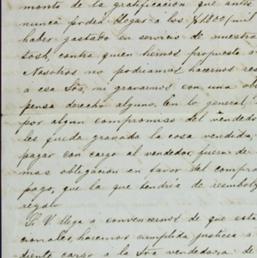 monto de la gratificacion que antes
nunca poder llegar a los $1200 (mil
haber gastado en servicio de nuestra
contra quien hemos propuesto
Nosotros no podíamos hacernos
a esa Sra, ni gravarnos con una
pensa derecho alguno. En lo general,
por algun compromiso del vendedor
les fuese gravado la cosa vendida,
pagar con cargo al vendedor, fuera de
mas obligacion en favor del compra
pago, que la que tendria de reembols
regalo
Si V. llega a convencernos de que esta
cionales, haremos cumplida justicia a
diente cargo a la Sra vendedora: de